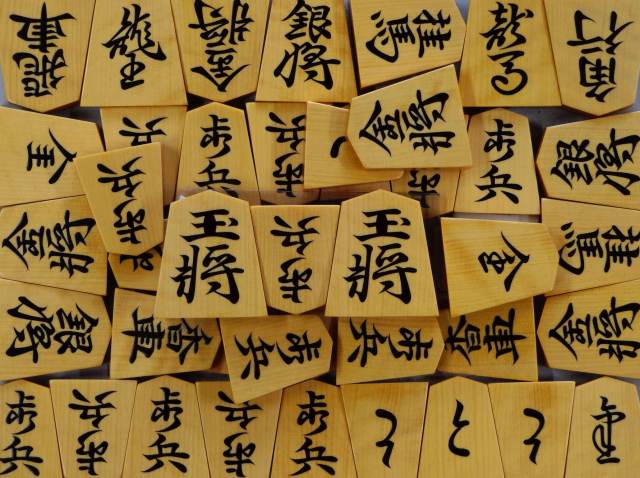 飛車
龍王
金将
銀将
桂馬
龍馬
角行
歩兵
歩兵
歩兵
金将
歩兵
歩兵
銀将
歩兵
金将
王将
歩兵
玉将
桂馬
銀将
香車
歩兵
歩兵
香車
金将
歩兵
歩兵
歩兵
歩兵
歩兵
と
と
と